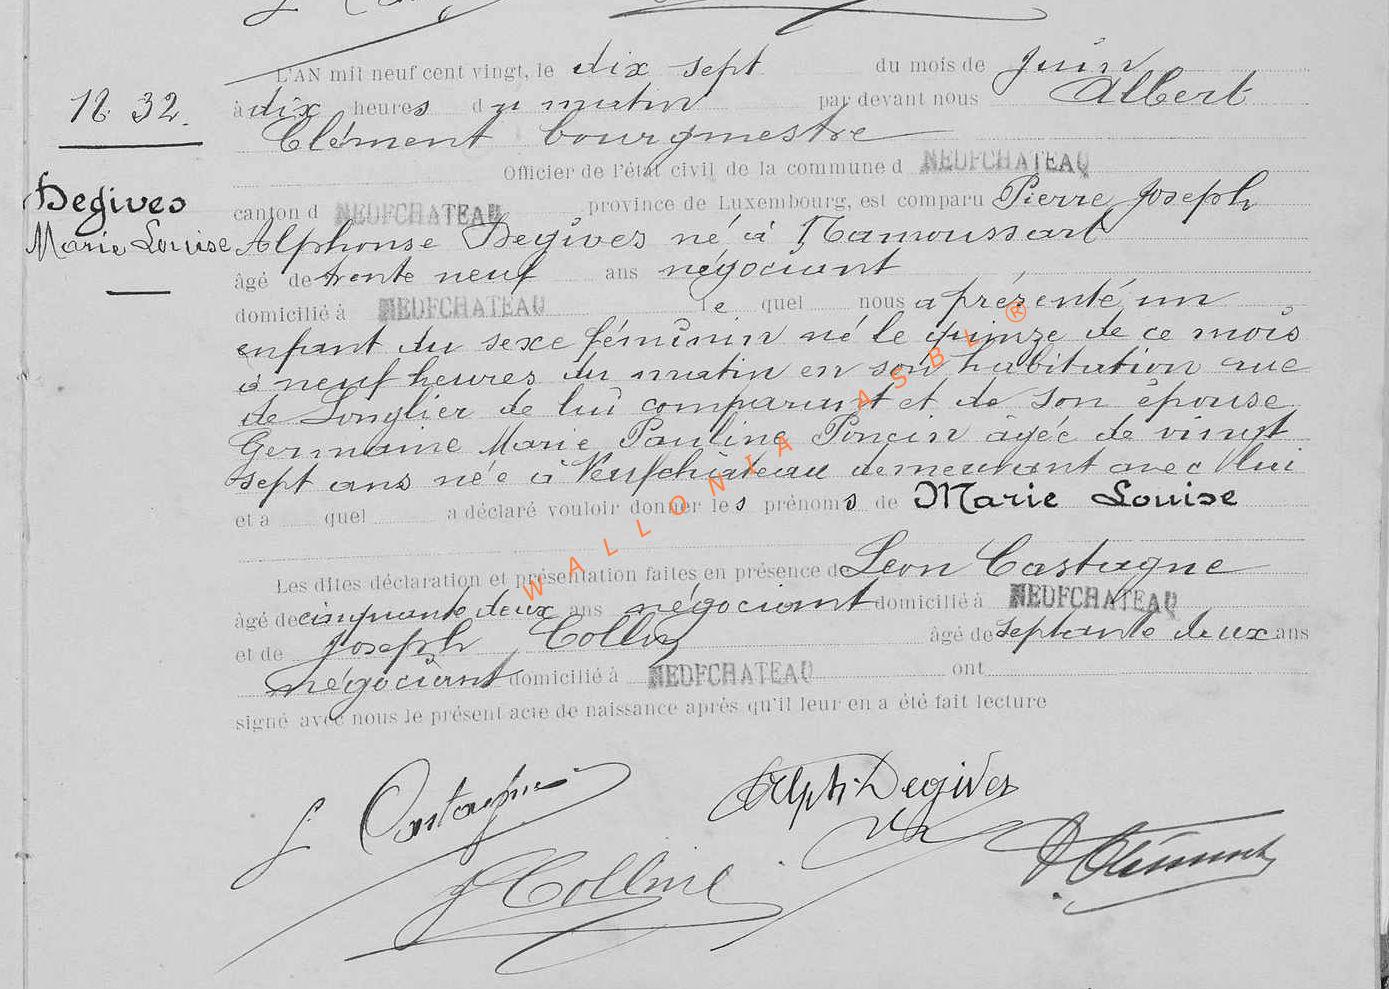 L'AN mil neuf cent vingt, le dix sept du mois de juin
à dix heures du matin par devant nous Albert
Clément bourgmestre
Officier de l'état civil de la commune d NEUFCHATEAU
canton d NEUFCHATEAU province de Luxembourg, est comparu Pierre Joseph
Alphonse Degives né à Namoussart
âgé de trente neuf ans négociant
domicilié à NEUFCHATEAU le quel nous a présenté un
enfant du sexe féminin né le quinze de ce mois
à neuf heures du matin en son habitation rue
de Longlier de lui comparant et de son épouse
Germaine Marie Pauline Poncin âgée de vingt
sept ans née à Neufchâteau demeurant avec lui
et a quel a déclaré vouloir donner les prénoms de Marie Louise
Les dites déclaration et présentation faites en présence de Léon Castagne
âgé de cinquante deux ans négociant domicilié à NEUFCHATEAU
et de Joseph Collin âgé de septante deux ans
négociant domicilié à NEUFCHATEAU ont
signé avec nous le présent acte de naissance après qu'il leur en a été fait lecture
18. 32.
Degives
Marie Louise
Castagne
Alph. Degives
J Collin
A. Clément
WALLONIA ASBL ®